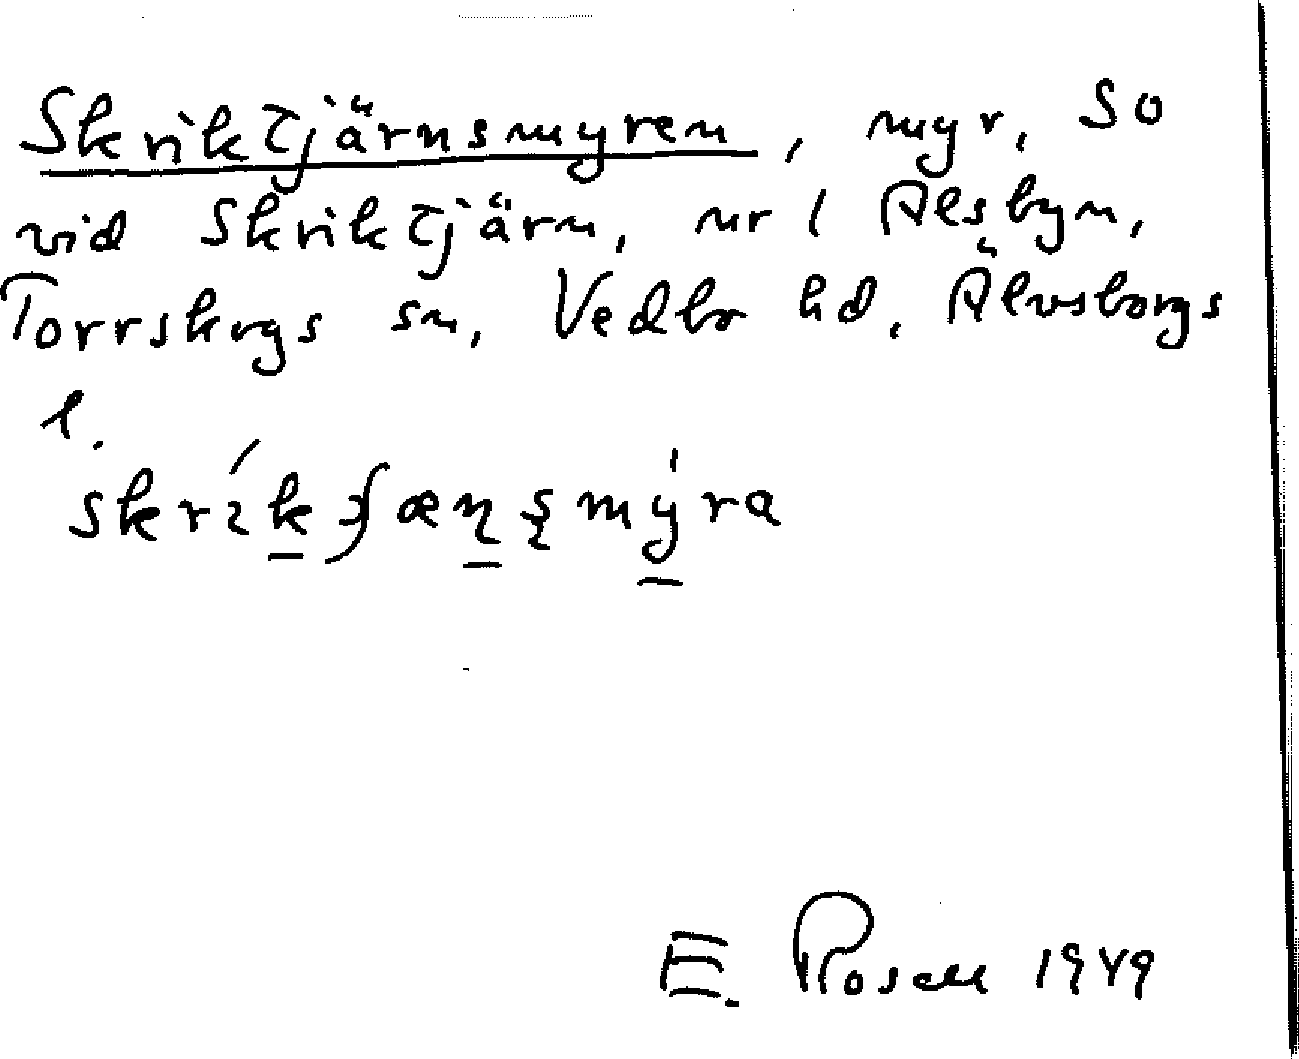 Skriktjärnsmyren, myr, SO
vid Skriktjärn, nr 1 Alsbyn,
Torrskogs sn, Vedbo hd, Älvsborgs
l.
E. Rosell 1949